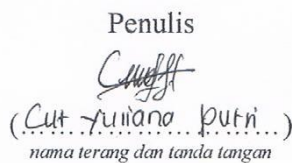 Penulis
(Cut Yuliana Putri)
nama terang dan tanda tangan